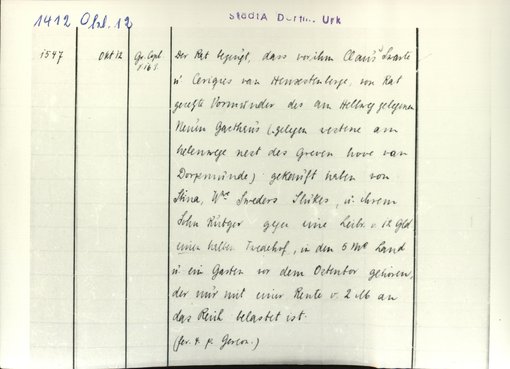 1412 Okt. 12
StadtA Dortm. Urk
1547 Okt 12 Gr. Copb.
Der Rat bezeugt, dass vor ihm Claus Swarte
u van Henxstenberge, vom Rat
gesetzte Vormünder des am Hellweg gelegenen
Neuen Gasthaus (gelegen vestene am
helenwege nest des Greven hove van
Dorpmunde) gekauft haben von
Stina, Wwe Sweders, u ihrem
Sohn Rutger gegen eine Leibr. v. 12 Gld
einen halben, in den 5 Land
u ein Garten vor dem Ostentor gehören,
der nur mit einer Rente v. 2 M an
das Reich belastet ist.
(fer. 4. p.)